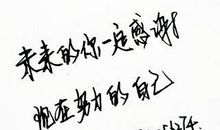 未来的你一定感谢
现在努力的自己